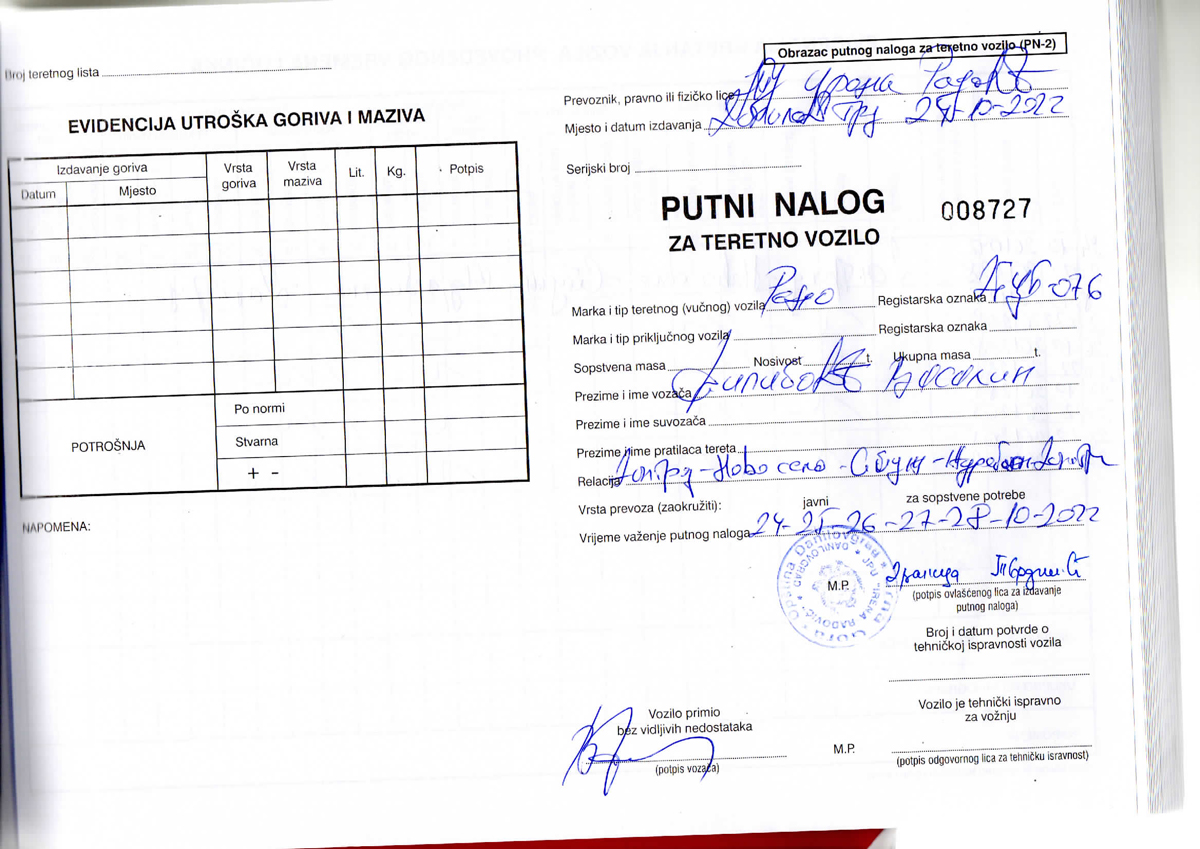 Broj teretnog lista
EVIDENCIJA UTROŠKA GORIVA I MAZIVA
Izdavanje goriva
Vrsta goriva
Vrsta maziva
Lit.
Kg.
Potpis
Datum
Mjesto
POTROŠNJA
Po normi
Stvarna
+ -
NAPOMENA:
Obrazac putnog naloga za teretno vozilo (PN-2)
Prevoznik, pravno ili fizičko lice
Mjesto i datum izdavanja 24-10-2022
Serijski broj
PUTNI NALOG 008727
ZA TERETNO VOZILO
Marka i tip teretnog (vučnog) vozila Registarska oznaka
Marka i tip priključnog vozila Registarska oznaka
Sopstvena masa Nosivost t. Ukupna masa t.
Prezime i ime vozača
Prezime i ime suvozača
Prezime i ime pratilaca tereta
Relacija Ново село
Vrsta prevoza (zaokružiti): javni za sopstvene potrebe
Vrijeme važenje putnog naloga 24-25-26-27-28-10-2022
Opština Danilovgrad * Crna Gora
JPU "IRENA RADOVIĆ" * DANILOVGRAD
M.P.
(potpis ovlašćenog lica za izdavanje
putnog naloga)
Broj i datum potvrde o
tehničkoj ispravnosti vozila
Vozilo je tehnički ispravno
za vožnju
Vozilo primio
bez vidljivih nedostataka
(potpis vozača)
M.P.
(potpis odgovornog lica za tehničku isravnost)